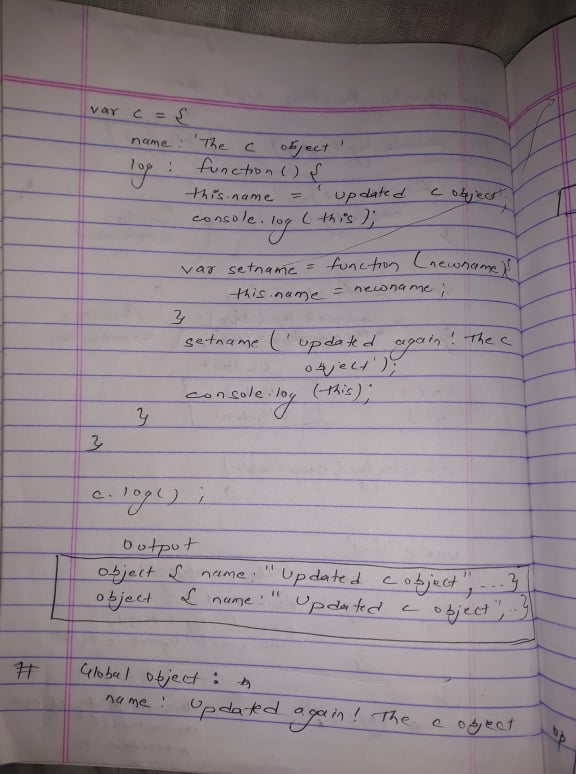 var c = {
name : 'The c object'
log : function() {
this.name = ' updated c object';
console.log (this);
var setname = function (newname){
this.name = newname;
}
setname (' updated again! The c
object');
console.log (this);
}
}
c.log() ;
output
object { name: "Updated c object", ...}
object { name: " Updated c object", ..}
# Global object :
name : Updated again! The c object
op